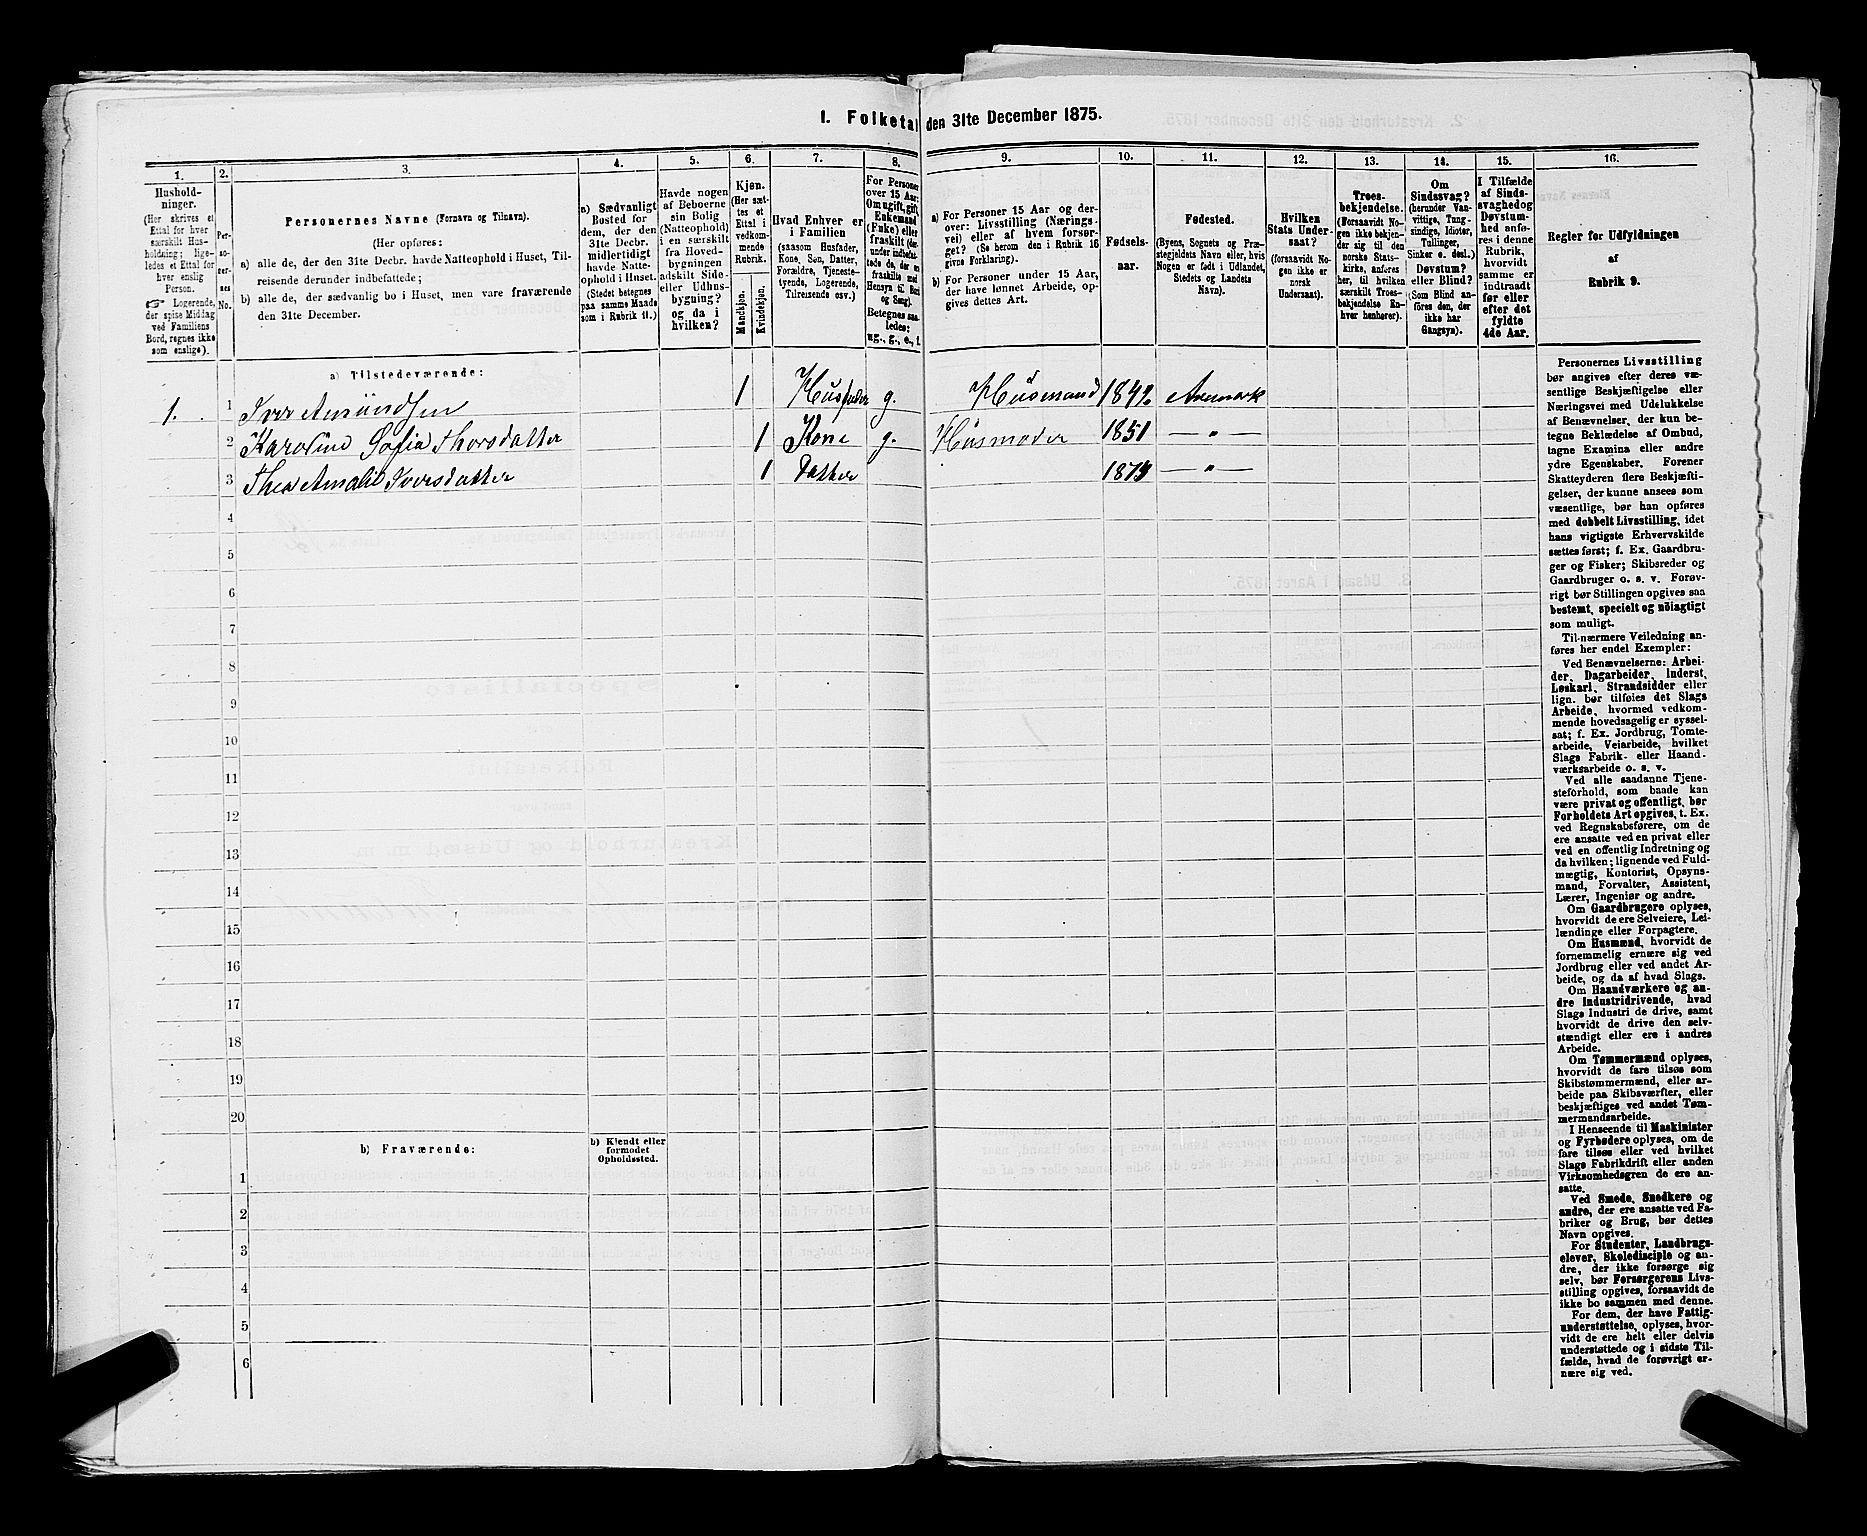 1. Folketal den 31te December 1875.
1. 2. 3. 4. 5. 6. 7. 8. 9. 10. 11. 12. 13. 14. 15. 16.
Hushold-
ninger.
(Her skrives et
Ettal for hver
særskilt Hus-
holdning; lige-
ledes et Ettal for
hver enslig
Person.
☞ Logerende,
der spise Middag
ved Familiens
Bord, regnes ikke
som enslige).
Per-
so-
ner-
nes
No.
Personernes Navne (Fornavn og Tilnavn).
(Her opføres:
a) alle de, der den 31te Decbr. havde Natteophold i Huset, Til-
reisende derunder indbefattede;
b) alle de, der sædvanlig bo i Huset, men vare fraværende
den 31te December.
a) Sædvanligt
Bosted for
dem, der den
31te Decbr.
midlertidigt
havde Natte-
ophold i Huset.
(Stedet betegnes
paa samme Maade
som i Rubrik 11.)
Havde nogen
af Beboerne
sin Bolig
(Natteophold)
i en særskilt
fra Hoved-
bygningen
adskilt Side-
eller Udhus-
bygning?
og da i
hvilken?
Kjøn.
(Her sæt-
tes et
Ettal i
vedkom-
mende
Rubrik.
Mandkjøn.
Kvindekjøn.
Hvad Enhver er
i Familien
(saasom Husfader,
Kone, Søn, Datter,
Forældre, Tjeneste-
tyende, Logerende,
Tilreisende osv.)
For Personer
over 15 Aar:
Om ugift, gift,
Enkemand
(Enke) eller
fraskilt (der-
under indbefat-
tede de, der ere
fraskilte med
Hensyn til Bord
og Seng).
Betegnes saa-
ledes:
ug., g., e., f.
a) For Personer 15 Aar og der-
over: Livsstilling (Nærings-
vei) eller af hvem forsør-
get? (Se herom den i Rubrik 16
givne Forklaring).
b) For Personer under 15 Aar,
der have lønnet Arbeide, op-
gives dettes Art.
Fødsels-
aar.
Fødested.
(Byens, Sognets og Præ-
stegjeldets Navn eller, hvis
Nogen er født i Udlandet,
Stedets og Landets
Navn).
Hvilken
Stats Under-
saat?
(forsaavidt No-
gen ikke er
norsk
Undersaat).
Troes-
bekjendelse.
(Forsaavidt No-
gen ikke bekjen-
der sig til den
norske Stats-
kirke, anføres
her, til hvilken
særskilt Troes-
bekjendelse En-
hver henhører).
Om
Sindssvag?
(herunder Van-
vittige, Tung-
sindige, Idioter,
Tullinger,
Sinker o. desl.)
Døvstum?
eller Blind?
(Som Blind an-
føres den, der
ikke har
Gangsyn).
I Tilfælde
af Sinds-
svaghed og
Døvstum-
hed anfø-
res i denne
Rubrik,
hvorvidt
samme er
indtraadt
før eller
efter det
fyldte
4de Aar.
Regler for Udfyldningen
af
Rubrik 9.
a) Tilstedeværende:
1. 1 Iver Amundsen 1 Husfader g. Husmand 1842 Aremark
2 Karoline Sofia Thorsdatter 1 Kone g. Husmoder 1851 — " —
3 Thea Amalie Iversdatter 1 Datter — " —
4
5
6
7
8
9
10
11
12
13
14
15
16
17
18
19
20
b) Fraværende:
b) Kjendt eller
formodet
Opholdssted.
1
2
3
4
5
6
Personernes Livsstilling
bør angives efter deres væ-
sentlige Beskjæftigelse eller
Næringsvei med Udelukkelse
af Benævnelser, der kun be-
tegne Beklædelse af Ombud,
tagne Examina eller andre
ydre Egenskaber. Forener
Skatteyderen flere Beskjæfti-
gelser, der kunne ansees som
væsentlige, bør han opføres
med dobbelt Livsstilling, idet
hans vigtigste Erhvervskilde
sættes først; f. Ex. Gaardbru-
ger og Fisker; Skibsreder og
Gaardbruger o. s. v. Forøv-
rigt bør Stillingen opgives saa
bestemt, specielt og nöiagtigt
som muligt.
Til nærmere Veiledning an-
føres her endel Exempler:
Ved Benævnelserne: Arbei-
der, Dagarbeider, Inderst,
Løskarl, Strandsidder eller
lign. bør tilføies det Slags
Arbeide, hvormed vedkom-
mende hovedsagelig er syssel-
sat; f. Ex. Jordbrug, Tomte-
arbeide, Veiarbeide, hvilket
Slags Fabrik- eller Haand-
værksarbeide o. s. v.
Ved alle saadanne Tjene-
steforhold, som baade kan
være privat og offentligt, bør
Forholdets Art opgives, t. Ex.
ved Regnskabsførere, om de
ere ansatte ved en privat eller
ved en offentlig Indretning og
da hvilken; lignende ved Fuld-
mægtig, Kontorist, Opsyns-
mand, Forvalter, Assistent,
Lærer, Ingeniør og andre.
Om Gaardbrugere oplyses,
hvorvidt de ere Selveiere, Lei-
lændinge eller Forpagtere.
Om Husmænd, hvorvidt de
fornemmelig ernære sig ved
Jordbrug eller ved andet Ar-
beide, og da af hvad Slags.
Om Haandværkere og an-
dre Industridrivende, hvad
Slags Industri de drive, samt
hvorvidt de drive den selv-
stændigt eller ere i andres
Arbeide.
Om Tømmermænd oplyses,
hvorvidt de fare tilsøs som
Skibstømmermænd, eller ar-
beide paa Skibsværfter, eller
beskjæftiges ved andet Tøm-
mermandsarbeide.
I Henseende til Maskinister
og Fyrbødere oplyses, om de
fare tilsøs eller ved hvilket
Slags Fabrikdrift eller anden
Virksomhedsgren de ere an-
satte.
Ved Smede, Snedkere og
andre, der ere ansatte ved Fa-
briker og Brug, bør dettes
Navn opgives.
For Studenter, Landbrugs-
elever, Skoledisciple og an-
dre, der ikke forsørge sig
selv, bør Forsørgerens Livs-
stilling opgives, forsaavidt de
ikke bo sammen med denne.
For dem, der have Fattig-
understøttelse, oplyses, hvor-
vidt de ere helt eller delvis
understøttede og i sidste Til-
fælde, hvad de forøvrigt er-
nære sig ved.